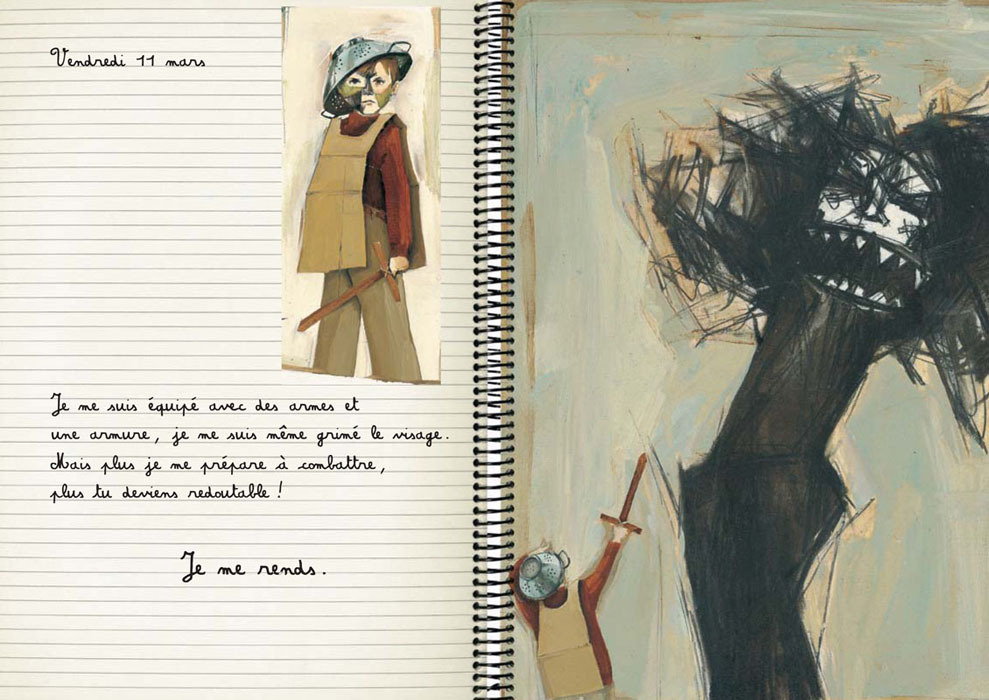 Vendredi 11 mars
Je me suis équipé avec des armes et
une armure, je me suis même grimé le visage.
Mais plus je me prépare à combattre,
plus tu deviens redoutable !
Je me rends.